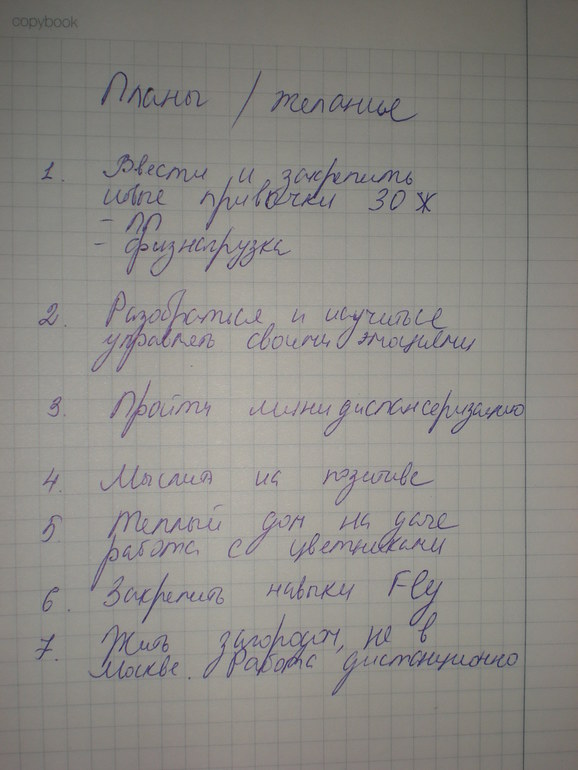 copybook
Планы / желание
1. Ввести и закрепить
новые привычки ЗОЖ
- пп
- физнагрузка
2. Разобраться и научиться
управлять своими эмоциями
3. Пройти минидиспансеризацию
4. Мыслить на позитиве
5 Теплый дом на даче
работа с цветниками
6. Закрепить навыки Fly
7. Жить загородом, не в
Москве. Работа дистанционно